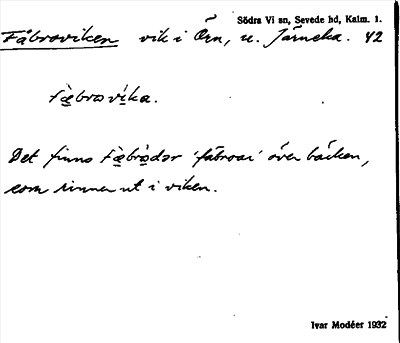 Södra Vi sn, Sevede hd, Kalm. l.
Fåbroviken vik i Örn, u. Järneka. Y2
Fæbrovika.
Det finns Fæbrodar 'fäbroar' över bäcken,
som rinner ut i viken.
Ivar Modéer 1932